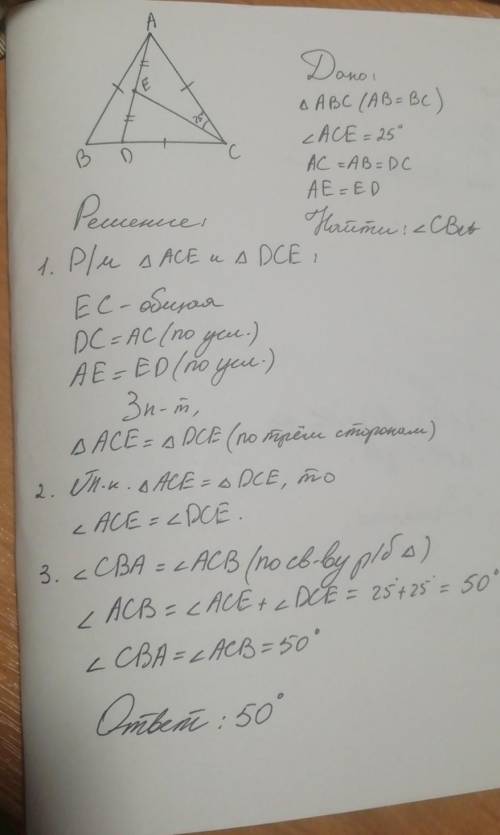 A
E
25
B D C
Дано:
△ ABC (AB = BC)
∠ACE = 25°
AC = AB = DC
AE = ED
Найти: ∠CBA
Решение:
1. Р/м △ ACE и △ DCE:
EC - общая
DC = AC (по усл.)
AE = ED (по усл.)
Зн-т,
△ ACE = △ DCE (по трём сторонам)
2. Т.к. △ ACE = △ DCE, то
∠ ACE = ∠DCE.
3. ∠CBA = ∠ACB (по св-ву р/б △)
∠ ACB = ∠ACE + ∠DCE = 25° + 25° = 50°
∠ CBA = ∠ACB = 50°
Ответ: 50°